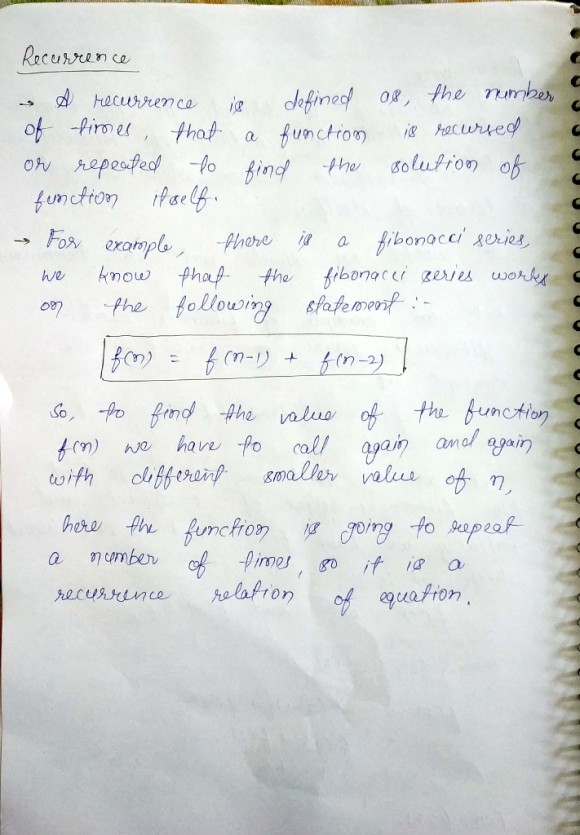 Recurrence
→ A recurrence is defined as, the number
of times, that a function is recursed
or repeated to find the solution of
function itself.
→ For example, there is a fibonacci series,
we know that the fibonacci series works
on the following statement :-
f(n) = f(n-1) + f(n-2)
So, to find the value of the function
f(n) we have to call again and again
with different smaller value of n,
here the function is going to repeat
a number of times, so it is a
recurrence relation of equation.